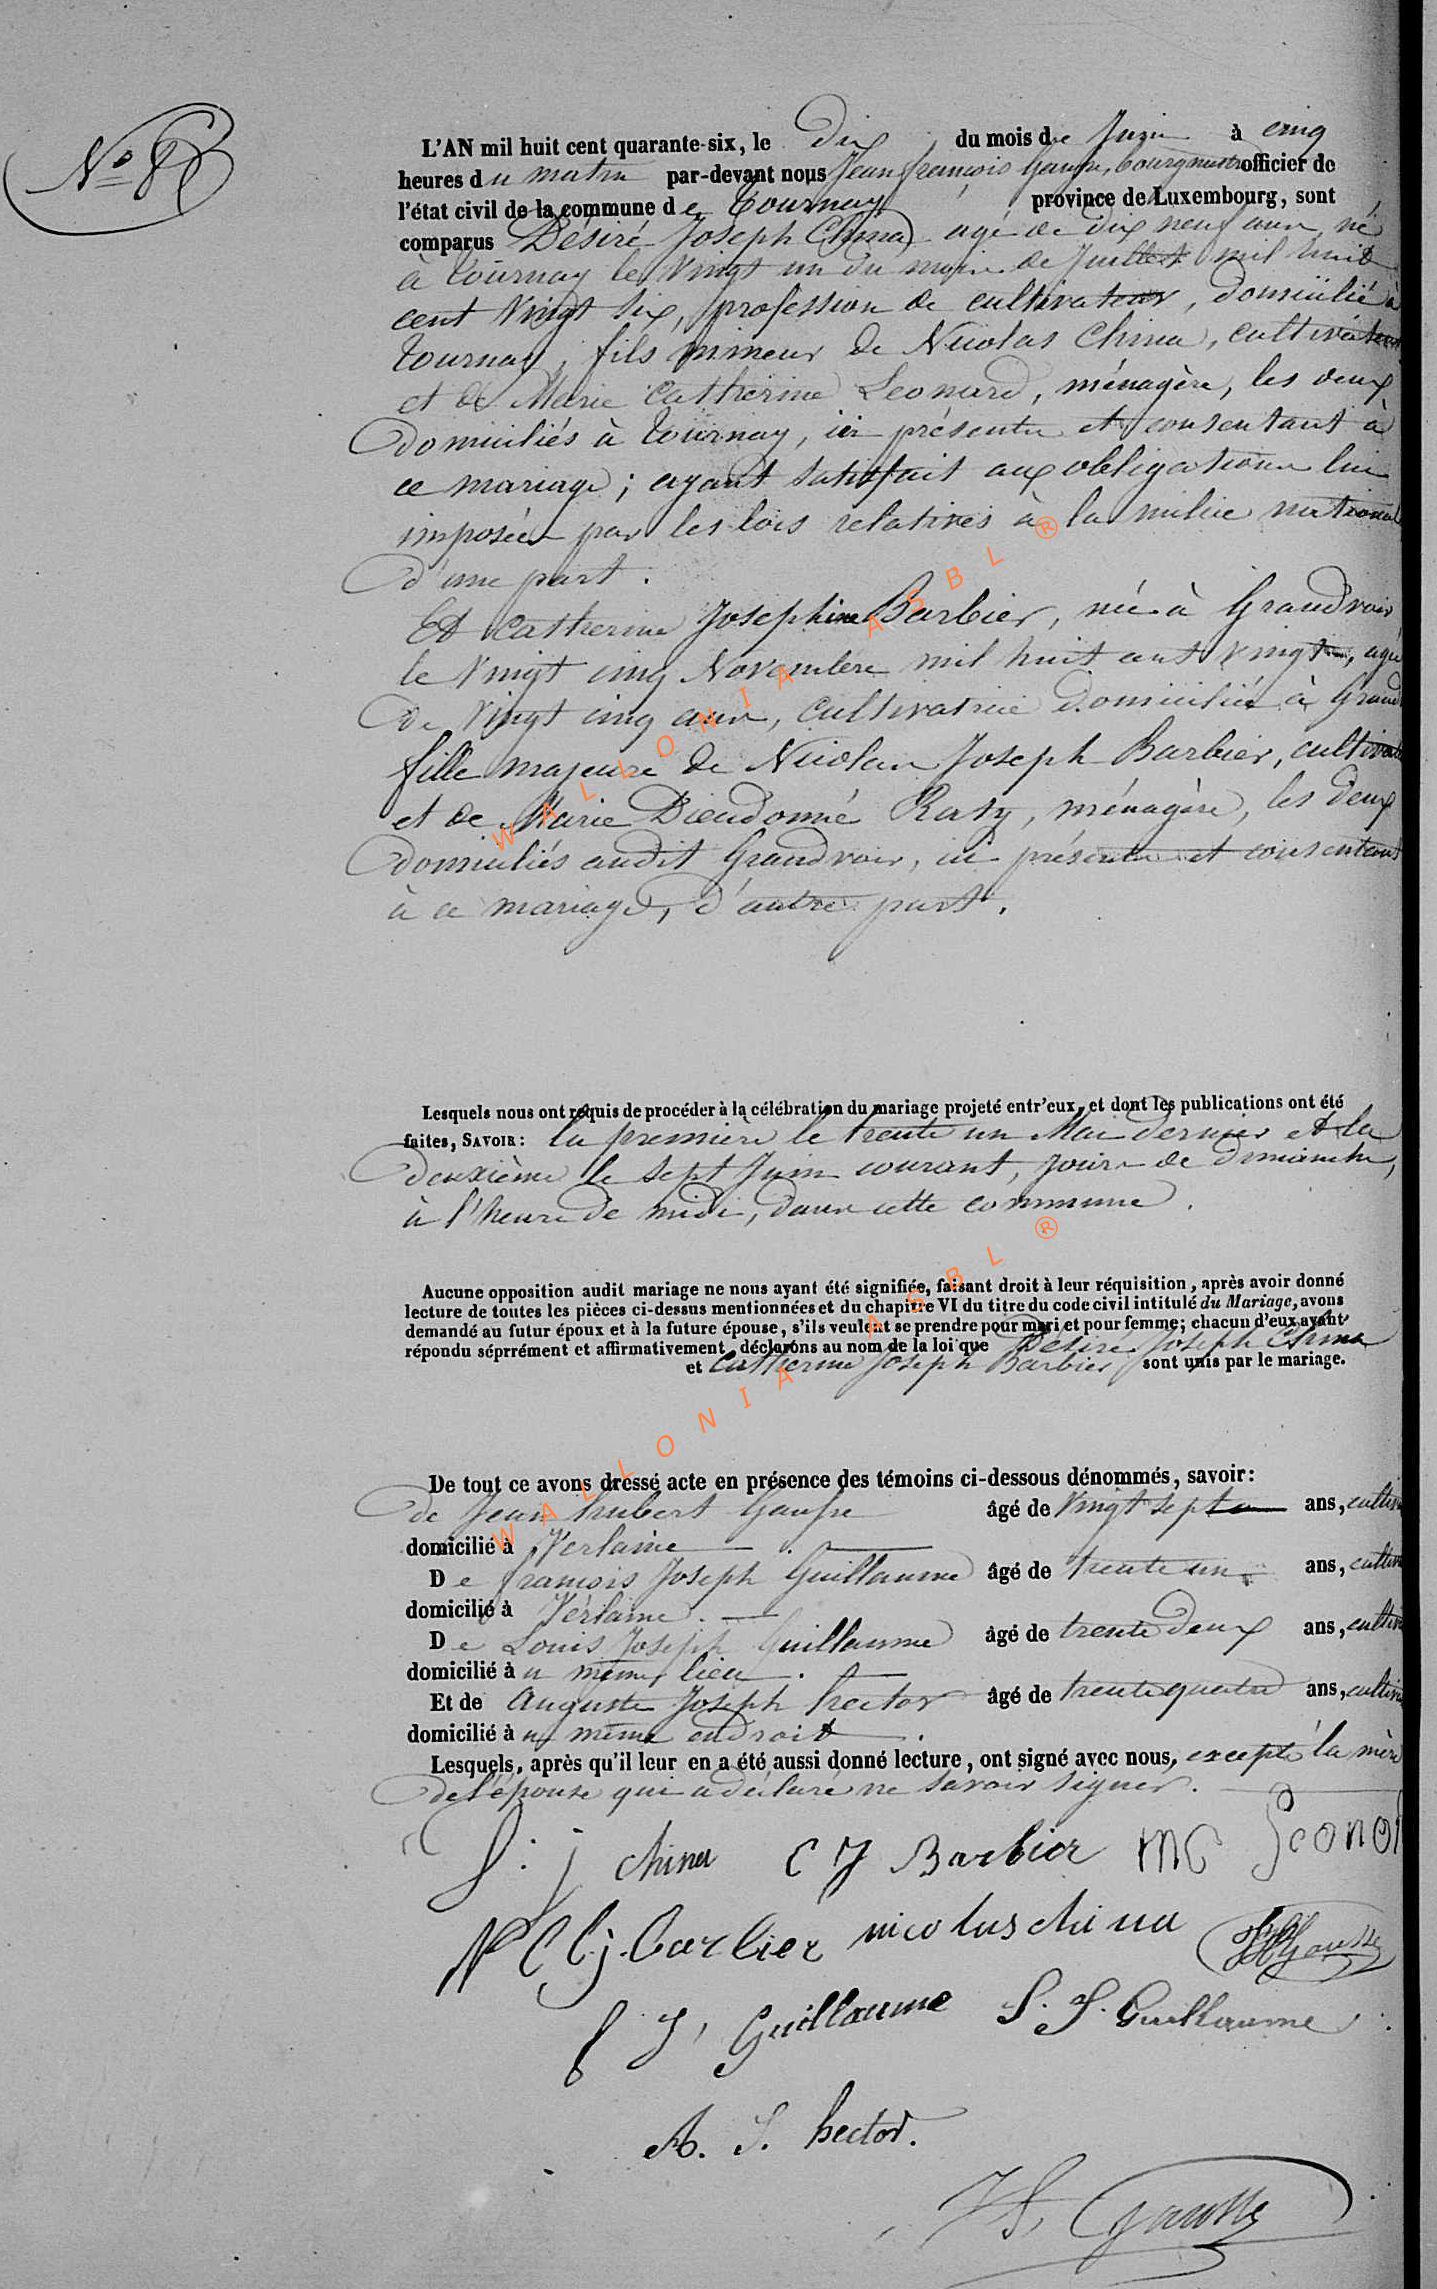 N° 8
L'AN mil huit cent quarante-six, le dix du mois de Juin à cinq
heures du matin par-devant nous Jean françois Gausse, bourgmestre officier de
l'état civil de la commune de Tournay province de Luxembourg, sont
comparus Désiré Joseph China agé de dix neuf ans, né
à Tournay le vingt un du mois de Juillet mil huit
cent vingt six, profession de cultivateur, domicilié à
Tournay, fils mineur de Nicolas China, cultivateur
et de Marie Catherine Leonard, ménagère, les deux
domiciliés à Tournay, ici présents et consentant à
ce mariage; ayant satisfait aux obligations lui
imposées par les lois relatives à la milice nationale
d'une part.
Et Catherine Josephine Barbier, née à Grandvoir,
le vingt cinq Novembre mil huit cent vingt, agée
de vingt cinq ans, cultivatrice domiciliée à Grand
fille majeure de Nicolas Joseph Barbier, cultivat
et de Marie Dieudonné Rasq, ménagère, les deux
domiciliés audit Grandvoir, ici présents et consentant
à ce mariage, d'autre part.
Lesquels nous ont requis de procéder à la célébration du mariage projeté entr'eux, et dont les publications ont été
faites, SAVOIR: la première le trente un Mai dernier et la
deuxième le sept Juin courant, jours de dimanche,
à l'heure de midi, dans cette commune.
Aucune opposition audit mariage ne nous ayant été signifiée, faisant droit à leur réquisition, après avoir donné
lecture de toutes les pièces ci-dessus mentionnées et du chapitre VI du titre du code civil intitulé du Mariage, avons
demandé au futur époux et à la future épouse, s'ils veulent se prendre pour mari et pour femme; chacun d'eux ayant
répondu séprrément et affirmativement, déclarons au nom de la loi que Désiré Joseph China
et Catherine Joseph Barbier sont unis par le mariage.
De tout ce avons dressé acte en présence des témoins ci-dessous dénommés, savoir:
de Jean hubert Gausse âgé de vingt sept ans, cultiv
domicilié à Verlaine
De françois Joseph Guillaume âgé de trente un ans, cultiv
domicilié à Verlaine.
De Louis Joseph Guillaume âgé de trente deux ans, cultiv
domicilié à u même lieu.
Et de Auguste Joseph hector âgé de trente quatre ans, cultiv
domicilié à u même endroit.
Lesquels, après qu'il leur en a été aussi donné lecture, ont signé avec nous, excepté la mère
de l'épouse qui a déclaré ne savoir signer.
D. j china C J Barbier MC Leonar
N Barbier nicolas china JH Gausse
f J, Guillaume L. J. Guillaume
A. J. hector.
J f Gausse
WALLONIA ASBL ®
WALLONIA ASBL ®